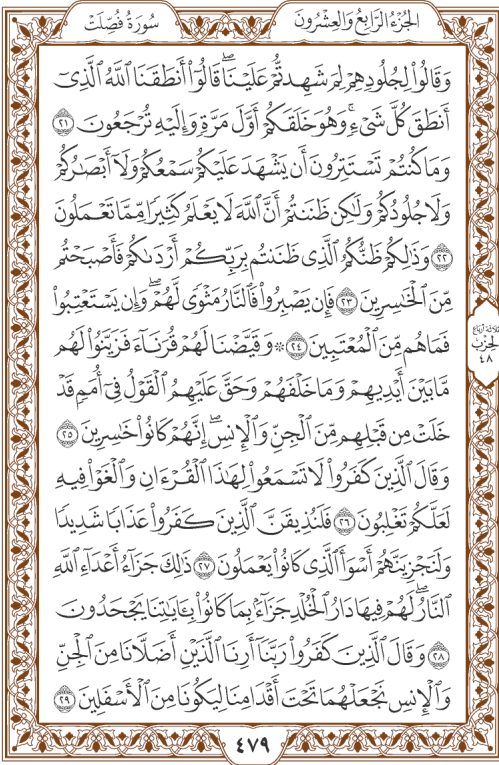 الجُزْءُ الرَّابِعُ وَالعِشْرُونَ سُورَةُ فُصِّلَتْ
وَقَالُوا۟ لِجُلُودِهِمْ لِمَ شَهِدتُّمْ عَلَيْنَا ۖ قَالُوٓا۟ أَنطَقَنَا ٱللَّهُ ٱلَّذِىٓ
أَنطَقَ كُلَّ شَىْءٍ ۚ وَهُوَ خَلَقَكُمْ أَوَّلَ مَرَّةٍ وَإِلَيْهِ تُرْجَعُونَ ٢١
وَمَا كُنتُمْ تَسْتَتِرُونَ أَن يَشْهَدَ عَلَيْكُمْ سَمْعُكُمْ وَلَآ أَبْصَـٰرُكُمْ
وَلَا جُلُودُكُمْ وَلَـٰكِن ظَنَنتُمْ أَنَّ ٱللَّهَ لَا يَعْلَمُ كَثِيرًا مِّمَّا تَعْمَلُونَ
٢٢ وَذَٰلِكُمْ ظَنُّكُمُ ٱلَّذِى ظَنَنتُم بِرَبِّكُمْ أَرْدَىٰكُمْ فَأَصْبَحْتُم
مِّنَ ٱلْخَـٰسِرِينَ ٢٣ فَإِن يَصْبِرُوا۟ فَٱلنَّارُ مَثْوًى لَّهُمْ ۖ وَإِن يَسْتَعْتِبُوا۟
فَمَا هُم مِّنَ ٱلْمُعْتَبِينَ ٢٤ ۞ وَقَيَّضْنَا لَهُمْ قُرَنَآءَ فَزَيَّنُوا۟ لَهُم
مَّا بَيْنَ أَيْدِيهِمْ وَمَا خَلْفَهُمْ وَحَقَّ عَلَيْهِمُ ٱلْقَوْلُ فِىٓ أُمَمٍ قَدْ
خَلَتْ مِن قَبْلِهِم مِّنَ ٱلْجِنِّ وَٱلْإِنسِ ۖ إِنَّهُمْ كَانُوا۟ خَـٰسِرِينَ ٢٥
وَقَالَ ٱلَّذِينَ كَفَرُوا۟ لَا تَسْمَعُوا۟ لِهَـٰذَا ٱلْقُرْءَانِ وَٱلْغَوْا۟ فِيهِ
لَعَلَّكُمْ تَغْلِبُونَ ٢٦ فَلَنُذِيقَنَّ ٱلَّذِينَ كَفَرُوا۟ عَذَابًا شَدِيدًا
وَلَنَجْزِيَنَّهُمْ أَسْوَأَ ٱلَّذِى كَانُوا۟ يَعْمَلُونَ ٢٧ ذَٰلِكَ جَزَآءُ أَعْدَآءِ ٱللَّهِ
ٱلنَّارُ ۖ لَهُمْ فِيهَا دَارُ ٱلْخُلْدِ ۖ جَزَآءًۢ بِمَا كَانُوا۟ بِـَٔايَـٰتِنَا يَجْحَدُونَ
٢٨ وَقَالَ ٱلَّذِينَ كَفَرُوا۟ رَبَّنَآ أَرِنَا ٱلَّذَيْنِ أَضَلَّانَا مِنَ ٱلْجِنِّ
وَٱلْإِنسِ نَجْعَلْهُمَا تَحْتَ أَقْدَامِنَا لِيَكُونَا مِنَ ٱلْأَسْفَلِينَ ٢٩
ثلاثة أرباع
الحزب
٤٨
٤٧٩